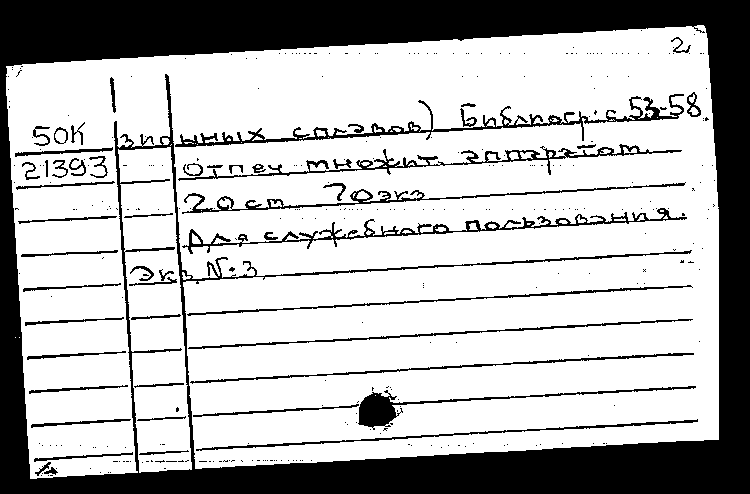 2
50К зионных сплавов) Библиогр: с. 53-58.
21393 Отпеч множит. аппаратом.
20 см 70 экз
Для служебного пользования.
Экз. №: 3